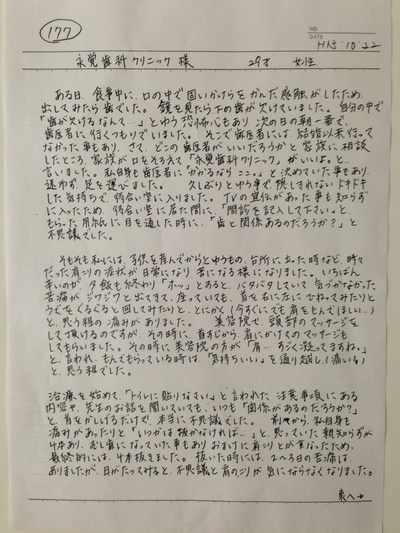 177
NO.
DATE H18.10.22
永覚歯科クリニック様 29才 女性
ある日、食事中に、口の中で固いかけらをかんだ感触がしたため、
出してみたら歯でした。鏡を見たら下の歯が欠けていました。自分の中で
「歯が欠けるなんて…」とゆう恐怖心もあり、次の日の朝一番で、
歯医者に行くつもりでいました。そこで歯医者には、結婚以来行って
なかった事もあり、さて、どこの歯医者がいいだろうかと家族に相談
したところ、家族が口をそろえて「永覚歯科クリニック」がいいよ。と
言いました。私自身も歯医者に「かかるならここ。」と決めていた事もあり、
迷わず足を運びました。久しぶりとゆう事で、隠しきれないドキドキ
した気持ちで、待合い室に入りました。TVの宣伝があった事も知らず
に入ったため、待合い室に居た間に、「問診を記入して下さい。」と
もらった用紙に目を通した時に、「歯と関係あるのだろうか?」と
不思議でした。
そもそも私には、子供を産んでからとゆうもの、台所に立った時など、時々
だった肩こりの症状が日常になり苦になる様になりました。いちばん
辛いのが、夕飯も終わり「ホッ」とすると、バタバタしていて気づかなかった
苦痛がジワジワと出てきて、座っていても、首を右に左にひねってみたりと
うでをぐるぐると回してみたりと、とにかく(今すぐにでも肩をもんでほしい…)
と思う程の痛みがありました。美容院で、頭部のマッサージを
して頂けるのですが、その時に、首すじから肩にかけてのマッサージも
してもらいました。その時に美容院の方が「肩…すごく凝ってますね。」
と言われ、もんでもらっている時は、「気持ちいい」を通り越し(痛いな)
と思う程でした。
治療を始めて、「トイレに貼りなさい」と言われた注意事項にある
内容や、先生のお話を聞いていても、いつも「関係があるのだろうか?」
と、首をかしげるだけで、本当に不思議でした。前から、私自身も
痛みがあったりと「いつかは抜かなければ…」と、思っていた親知らずが
4本あり、お世話になっていた事もありおまけに肩こりが苦なため、
最終的には、4本抜きました。抜いた時には、2~3日の苦痛は
ありましたが、日がたってみると、不思議と肩のこりが気にならなくなりました。
裏へ→